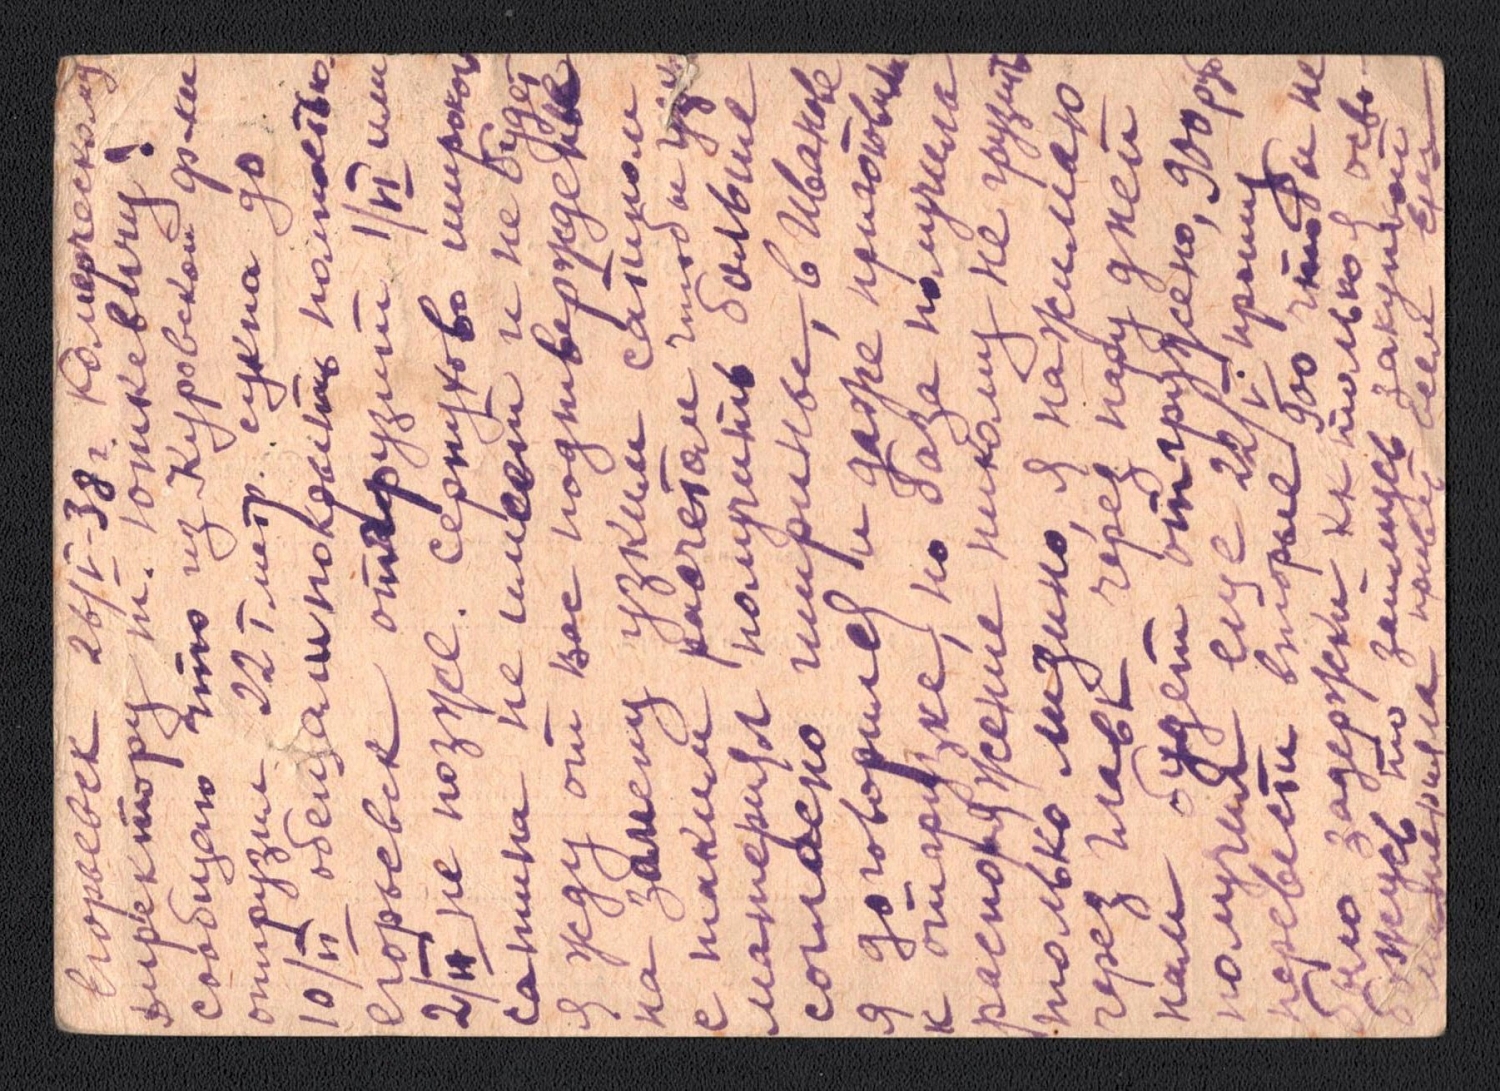 Егорьевск 26/I-38 г. Коммерческому
директору т. Юшкевичу!
сообщаю что из Куровской ф-ки
отгрузил 22 т мет. сукна до
10/II обещали покрыть полностью.
Егорьевск отгрузит 1/II или
2/II не позже. Серпухово широкого
сатина не имеет и не будет
Я жду от вас подтверждение
на замену узким сатином
с таким расчетом чтобы
материал получить больше
согласно ширины, в Иванове
я договорился и даже приготовили
к отгрузке, но база получила
распоряжение никому не грузить
только лизино, я нажимаю
через главк через пару дней
нам будет отгружено, 900 руб
получил еще 22/I. прошу
перевести вторые 900 чтобы не
было задержки как только осво-
божусь то займусь закупкой
материала